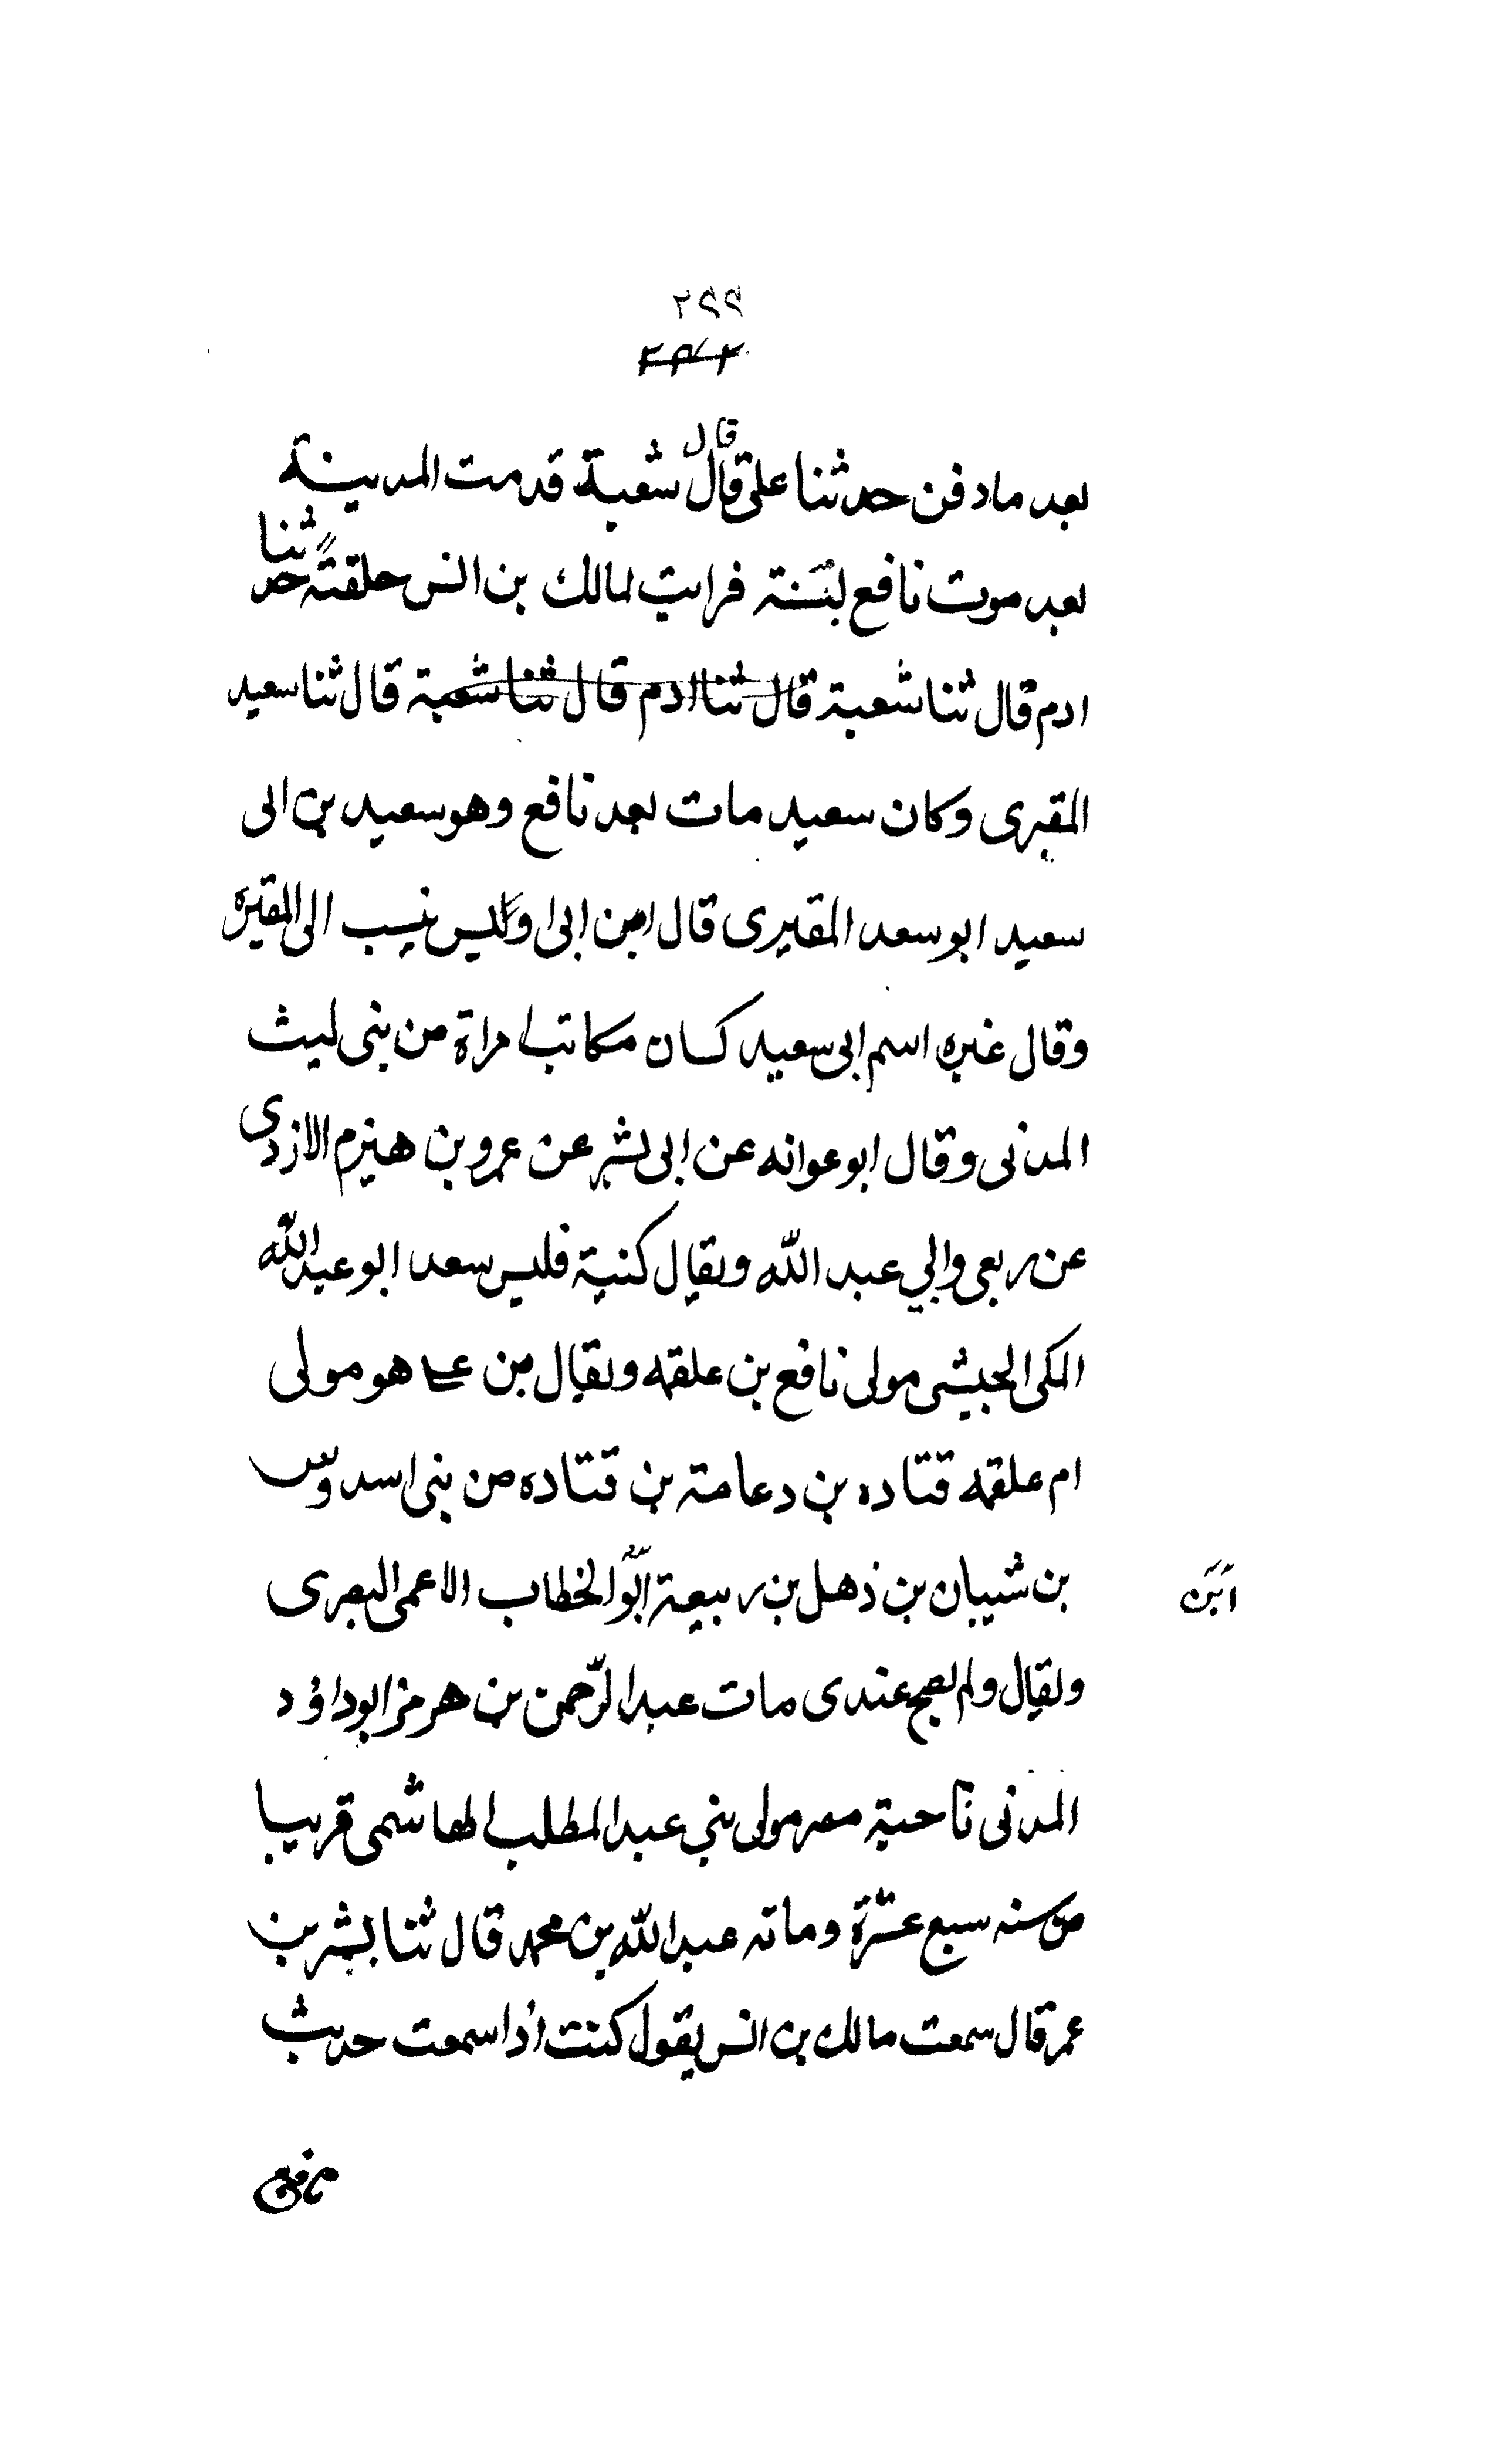 ٢٩٩
بعد مادفن حدثنا على قال قال شعبة قدمت المدينة
بعد موت نافع بسنة فرايت لمالك بن انس حلقة حدثنا
ادم قال ثنا شعبة قال ثنا ادم قال ثنا شعبة قال ثنا سعيد
المقبرى وكان سعيد مات بعد نافع وهو سعيد بن ابى
سعيد ابو سعد المقبرى قال ابن ابى اويس نسب الى المقبرة
وقال غيره اسم ابى سعيد كسان مكاتب امراة من بنى ليث
المدنى وقال ابو عوانه عن ابى بشر عن عمرو بن هيزم الازدى
عن ربعى والي عبد الله ويقال كنية قليس سعد ابو عبد الله
المكى الحبشى مولى نافع بن علقمه ويقال من هو مولى
ام علقمه قتاده بن دعامة بن قتاده من بنى اسدوس
بن شيبان بن ذهل بن ربيعة ابو الخطاب الاعمى البصرى
ابن
ويقال ولم يصح عندى مات عبد الرّحمن بن هرمز ابو داؤد
المدنى ناحية مصر مولى بني عبد المطلب الهاشمى قريبا
من سنه سبع عشرة ومائه عبد الله بن محمد قال ثنا بشر بن
عمر قال سمعت مالك بن انس يقول كنت اذا سمعت حديث
نافع